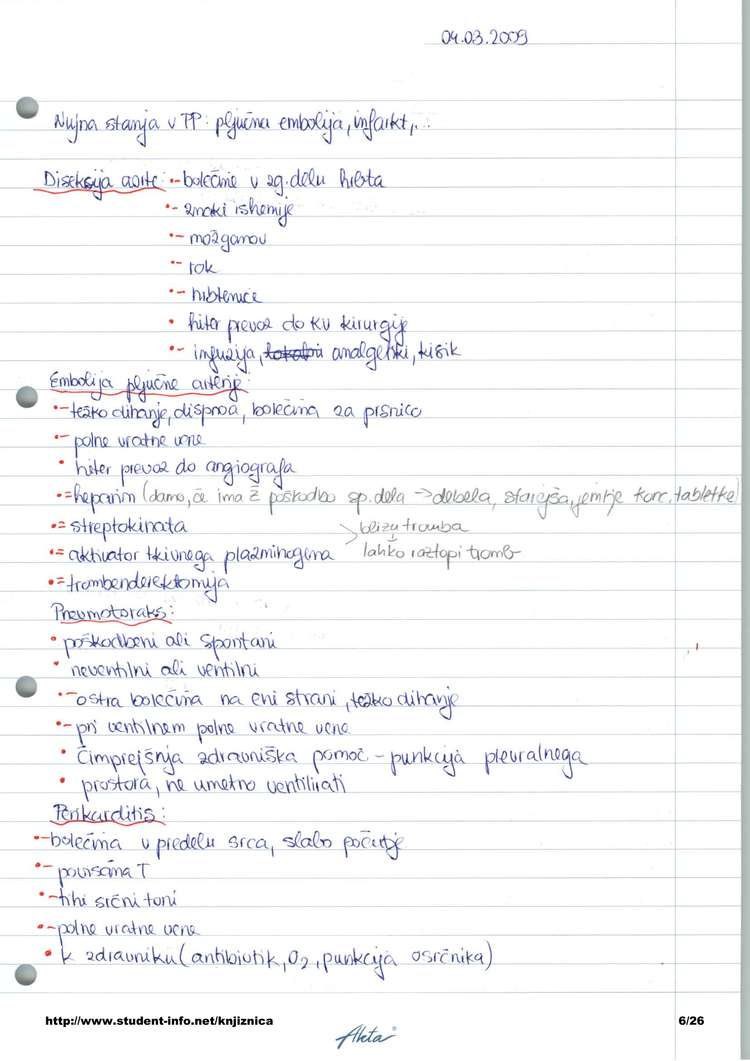 04.03.2009
Nujna stanja v TP: pljučna embolija, infarkt,...
Diseksija aorte: - bolečine v zg. delu hrbta
- znaki ishemije
- možganov
- rok
- hrbtenice
• hiter prevoz do KV kirurgije
- infuzija, analgetiki, kisik
Embolija pljučne arterije:
- težko dihanje, dispnoa, bolečina za prsnico
- polne vratne vene
• hiter prevoz do angiografa
= heparin (damo, če ima ž poškodbo sp. dela → debela, starejša, jemlje konc. tabletke)
= streptokinata > blizu tromba
= aktivator tkivnega plazminogena lahko raztopi tromb
= trombenderektomija
Pnevmotoraks:
• poškodbeni ali spontani
• neventilni ali ventilni
- ostra bolečina na eni strani, težko dihanje
- pri ventilnem polne vratne vene
• čimprejšnja zdravniška pomoč - punkcija plevralnega
• prostora, ne umetno ventilirati
Perikarditis:
- bolečina v predelu srca, slabo počutje
- povišana T
- tihi srčni toni
- polne vratne vene
• k zdravniku (antibiotik, O2, punkcija osrčnika)
http://www.student-info.net/knjiznica
6/26
Akta